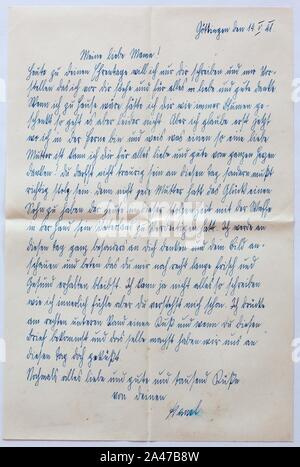 Göttingen den 14.V.41
Meine liebe Mama!
Heute zu deinem Ehrentage will ich nur dir schreiben und mir vor-
stellen das ich vor dir stehe und für alles liebe und gute danke
Wenn ich zu hause wäre hätte ich dir wie immer Blumen ge-
schenkt so geht es aber leider nicht. Aber ich glaube erst jetzt
wo ich in der Ferne bin und weis was einem so eine liebe
Mutter ist kann ich dir für alles liebe und gute vom ganzen Herzen
danken. du darfst nicht traurig sein an diesem tag sondern must
richtig stolz sein denn nicht jede Mutter hatt das Glück einen
Sohn zu haben der mit der Waffe
in der Hand sein Vaterland zu verteidigen hatt. Ich werde an
diesem tag ganz besonders an dich denken und dein Bild an-
schauen und beten das du mir noch recht lange frisch und
Gesund erhalten bleibst. Ich kann ja nicht alles so schreiben
wie ich innerlich fühle aber du verstehst mich schon. Ich drücke
am rechten unteren Rand einen Kuß und wenn du diesen
Brief bekommst und das selbe machst haben wir uns an
diesem tag doch geküßt
Nochmals alles liebe und gute und tausend Küße
von deinem